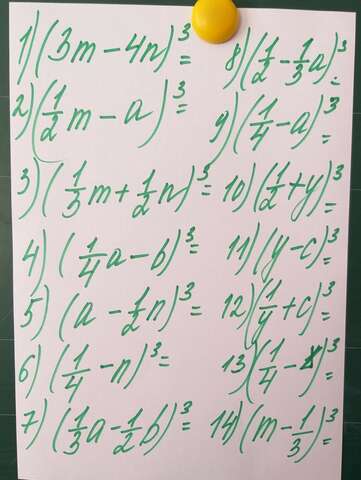 1) (3m - 4n)³ =
2) (1/2 m - a)³ =
3) (1/3 m + 1/2 n)³ =
4) (1/4 a - b)³ =
5) (a - 1/2 n)³ =
6) (1/4 - n)³ =
7) (1/3 a - 1/2 b)³ =
8) (1/2 - 1/3 a)³ =
9) (1/4 - a)³ =
10) (1/2 + y)³ =
11) (y - c)³ =
12) (1/4 + c)³ =
13) (1/4 - )³ =
14) (m - 1/3)³ =